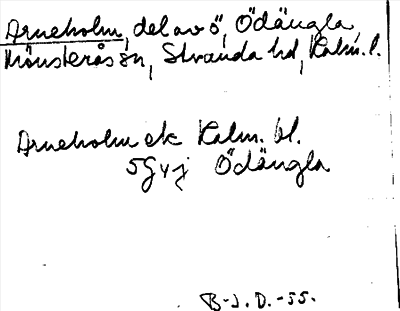 Arneholm, del av ö, Ödängla,
Mönsterås sn, Stranda hd, Kalm. l.
Arneholm ek Kalm. bl.
5G4j Ödängla
B-J. D. -55.